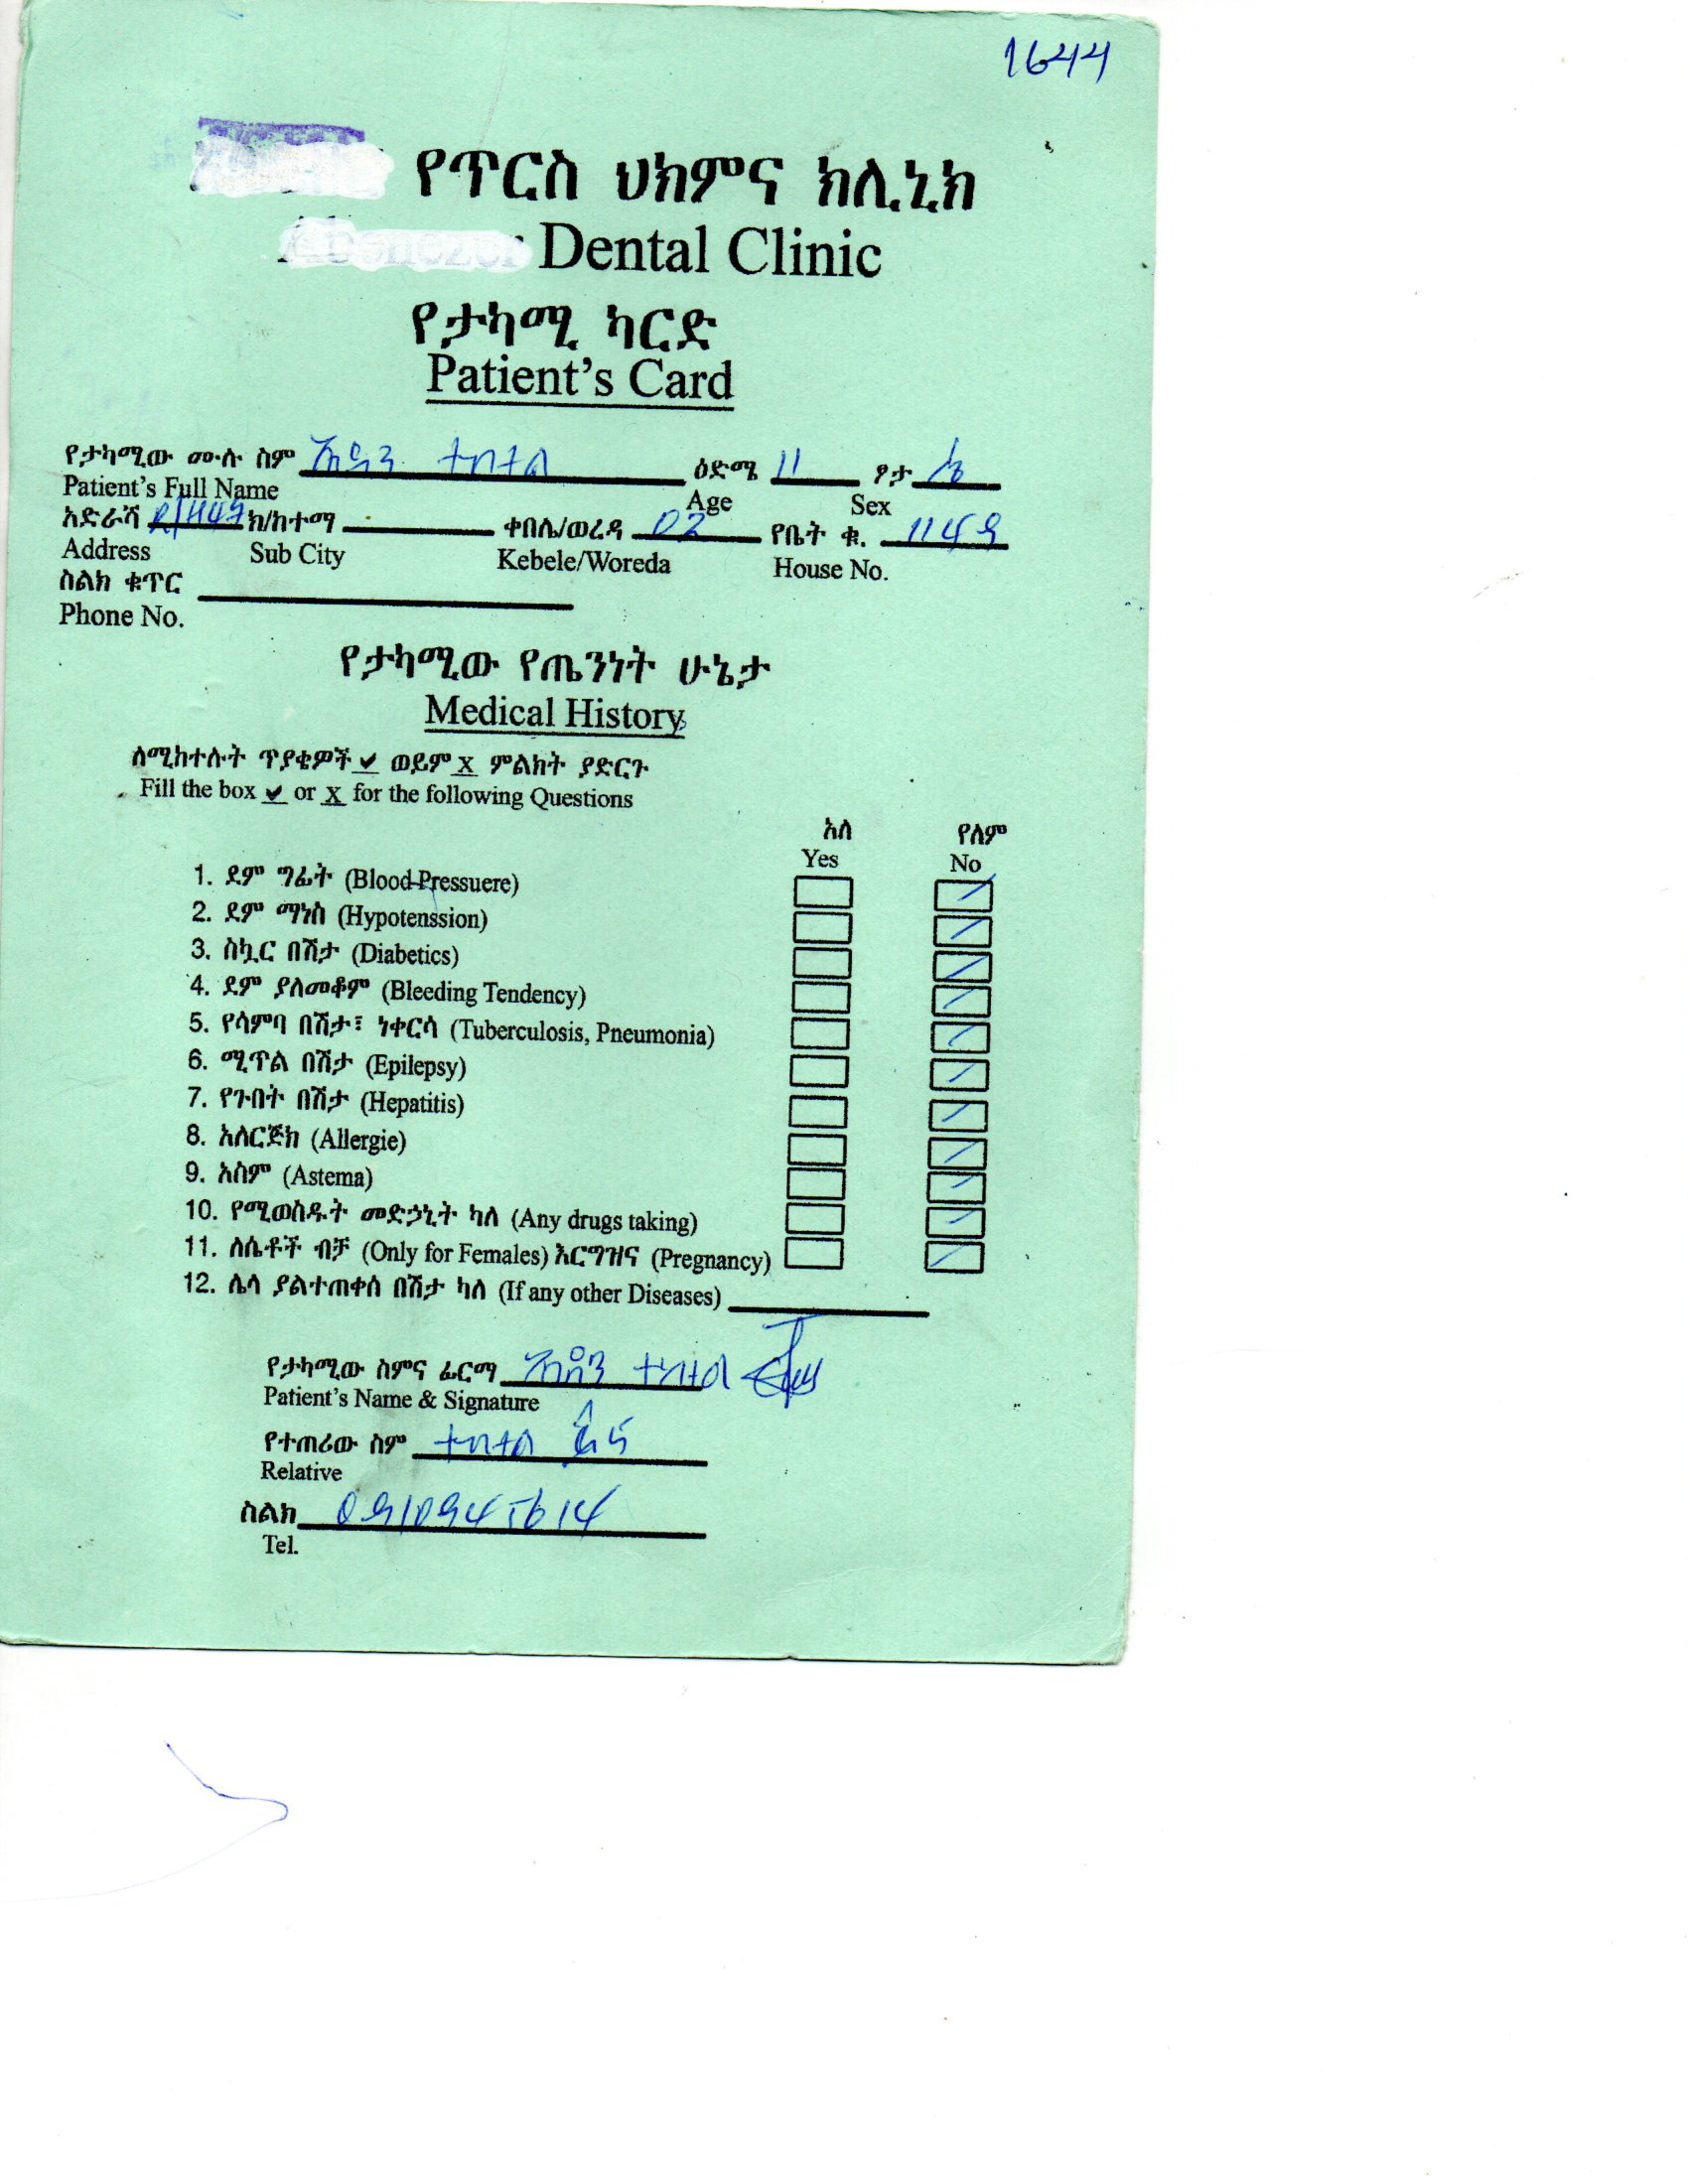 1644
የጥርስ ህክምና ክሊኒክ
Dental Clinic
የታካሚ ካርድ
Patient's Card
የታካሚው ሙሉ ስም ተስተል ዕድሜ 11 ፆታ ሴ
Patient's Full Name Age Sex
አድራሻ ክ/ከተማ ቀበሌ/ወረዳ 02 የቤት ቁ. 1149
Address Sub City Kebele/Woreda House No.
ስልክ ቁጥር
Phone No.
የታካሚው የጤንነት ሁኔታ
Medical History
ለሚከተሉት ጥያቄዎች ✔ ወይም X ምልክት ያድርጉ
Fill the box ✔ or X for the following Questions
አለ የለም
Yes No
1. ደም ግፊት (Blood Pressuere)
2. ደም ማነስ (Hypotenssion)
3. ስኳር በሽታ (Diabetics)
4. ደም ያለመቆም (Bleeding Tendency)
5. የሳምባ በሽታ፣ ነቀርሳ (Tuberculosis, Pneumonia)
6. ሚጥል በሽታ (Epilepsy)
7. የጉበት በሽታ (Hepatitis)
8. አለርጅክ (Allergie)
9. አስም (Astema)
10. የሚወስዱት መድኃኒት ካለ (Any drugs taking)
11. ለሴቶች ብቻ (Only for Females) እርግዝና (Pregnancy)
12. ሌላ ያልተጠቀሰ በሽታ ካለ (If any other Diseases)
የታካሚው ስምና ፊርማ
Patient's Name & Signature
የተጠሪው ስም
Relative
ስልክ 0910945614
Tel.